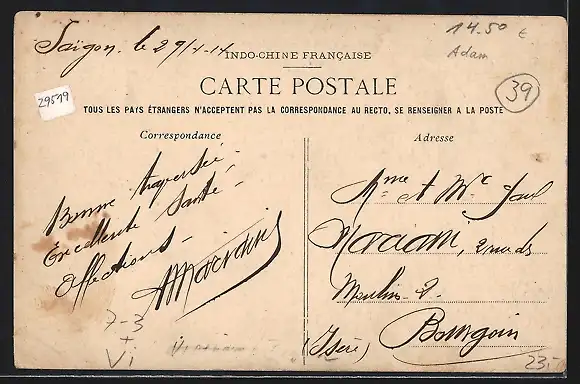 Saïgon, le 29/4-14
14.50 €
Adam
INDO-CHINE FRANÇAISE
CARTE POSTALE
29519
39
TOUS LES PAYS ÉTRANGERS N'ACCEPTENT PAS LA CORRESPONDANCE AU RECTO. SE RENSEIGNER A LA POSTE
Correspondance
Adresse
Bonne traversée -
Excellente santé -
Affections -
Mme & Mr
2
Moulin
Bourgoin
(Isère)
7-3
+
Vi
23,-